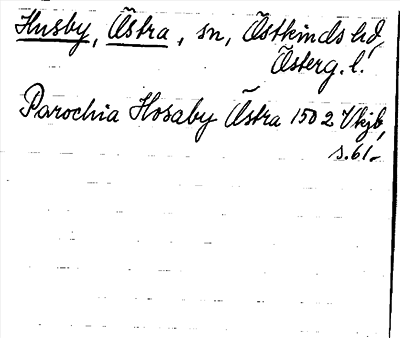 Husby, Östra, sn, Östkinds hd,
Österg. l.
Parochia Hosaby Östra 1502 Vkjb,
s. 61.